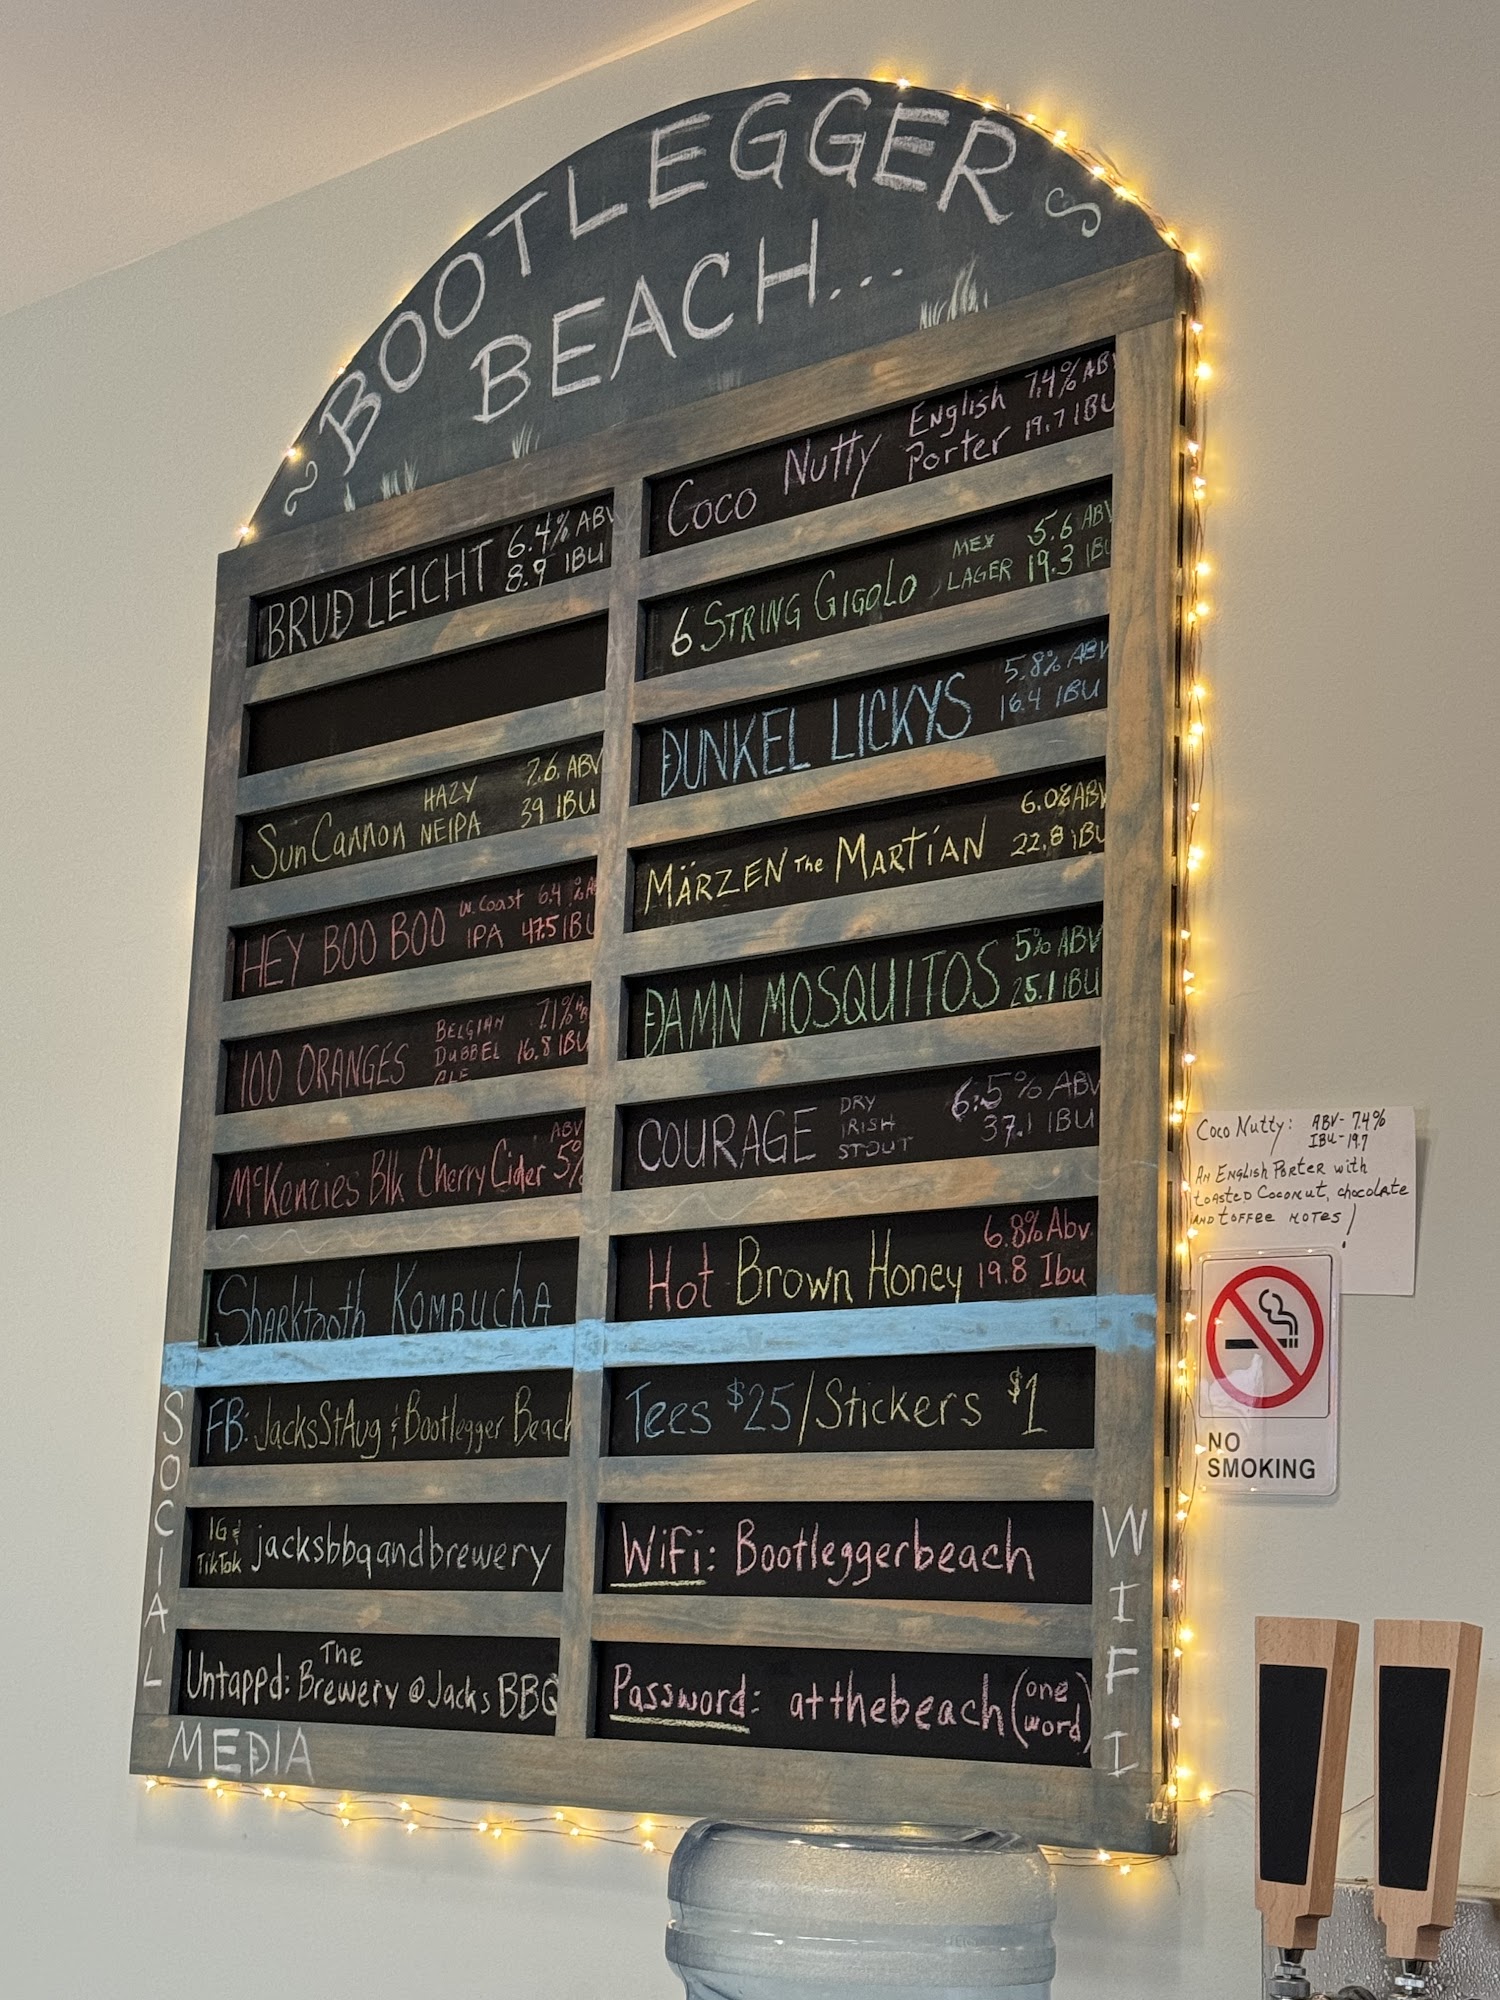 BOOTLEGGER
BEACH...
BRUD LEICHT 6.4% ABV
8.9 IBU
Sun Cannon HAZY NEIPA 7.6 ABV
39 IBU
HEY BOO BOO W. Coast IPA 6.4 %
47.5 IBU
100 ORANGES BELGIAN DUBBEL ALE 7.1%
16.8 IBU
McKenzies Blk Cherry Cider ABV 5%
Sharktooth KOMBUCHA
Coco Nutty English Porter 7.4% ABV
19.7 IBU
6 STRING GIGOLO MEX LAGER 5.6 ABV
19.3 IBU
DUNKEL LICKYS 5.8% ABV
16.4 IBU
MÄRZEN THE MARTIAN 6.0% ABV
22.8 IBU
DAMN MOSQUITOS 5% ABV
25.1 IBU
COURAGE DRY IRISH STOUT 6.5% ABV
37.1 IBU
Hot Brown Honey 6.8% Abv.
19.8 Ibu
SOCIAL
MEDIA
FB: JacksStAug & Bootlegger Beach
IG & TikTok jacksbbqandbrewery
Untappd: The Brewery @ Jacks BBQ
Tees $25/Stickers $1
WiFi: Bootleggerbeach
Password: atthebeach (one word)
WIFI
Coco Nutty: ABV- 7.4%
IBU- 19.7
AN ENGLISH PORTER with
toasted Coconut, chocolate
AND toffee NOTES!
NO
SMOKING